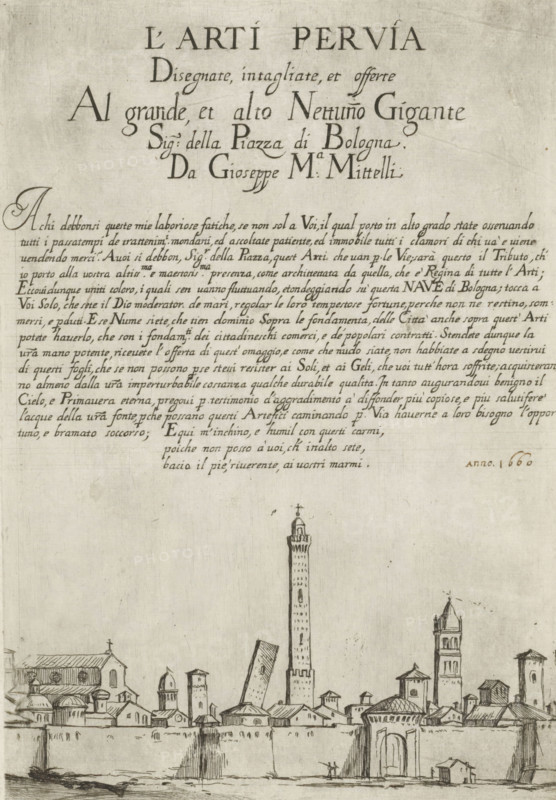 L'ARTI PER VIA
Disegnate, intagliate, et offerte
Al grande, et alto Nettuno Gigante
Sig.r della Piazza di Bologna.
Da Gioseppe M.a Mittelli
A chi debbonsi queste mie laboriose fatiche, se non sol a Voi, il qual posto in alto grado state osseruando
tutti i passatempi de trattenim.ti mondani, ed ascoltate patiente, ed immobile tutti i clamori di chi uà e uiene
uendendo merci. A uoi si debbon, Sig.r della Piazza, quest'Arti che uan p. le Vie; sarà questo il Tributo, ch'
io porto alla vostra altiss.ma e maestosis.ma presenza, come architettata da quella, che è Regina di tutte l'Arti;
Eccoui dunque uniti coloro, i quali sen uanno fluttuando, et ondeggiando in questa NAVE di Bologna; tocca a
Voi Solo, che siete il Dio moderator de mari, regolar le loro tempestose fortune, perche non ne restino, som-
mersi, e pduti. E se Nume siete, che tien dominio Sopra le fondamenta delle Città anche sopra quest'Arti
potete hauerlo, che son i fondam.ti dei cittadineschi comerci, e de popolari contratti. Stendete dunque la
urã mano potente, riceuete l'offerta di quest'omaggio, e come che nudo siate, non habbiate a sdegno uestirui
di questi fogli, che se non possono p se steui resister ai Soli, et ai Geli, che uoi tutt'hora soffrite, acquisteran-
no almeno dalla urã imperturbabile costanza qualche durabile qualita. In tanto augurandoui benigno il
Cielo, e Primauera eterna, pregoui p. testimonio d'aggradimento à diffonder piu copiose, e piu salutifere
l'acque della urã fonte, pche possano questi Artefici caminando p. Via hauerne a loro bisogno l'oppor
tuno, e bramato soccorso; Equi m'inchino, e humil con questi carmi,
poiche non posso à uoi, ch'inalto sete,
bacio il piè, riuerente, ai uostri marmi.
Anno. 1660